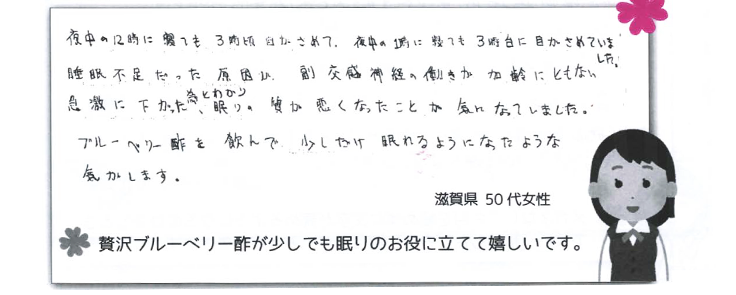 夜中の12時に寝ても3時頃目がさめて、夜中の1時に寝ても3時台に目がさめていました。
睡眠不足だった原因は、副交感神経の働きが加齢にともない
急激に下がった為とわかり、眠りの質が悪くなったことが気になってしました。
ブルーベリー酢を飲んで少しだけ眠れるようになったような
気がします。
滋賀県 50代女性
贅沢ブルーベリー酢が少しでも眠りのお役に立てて嬉しいです。